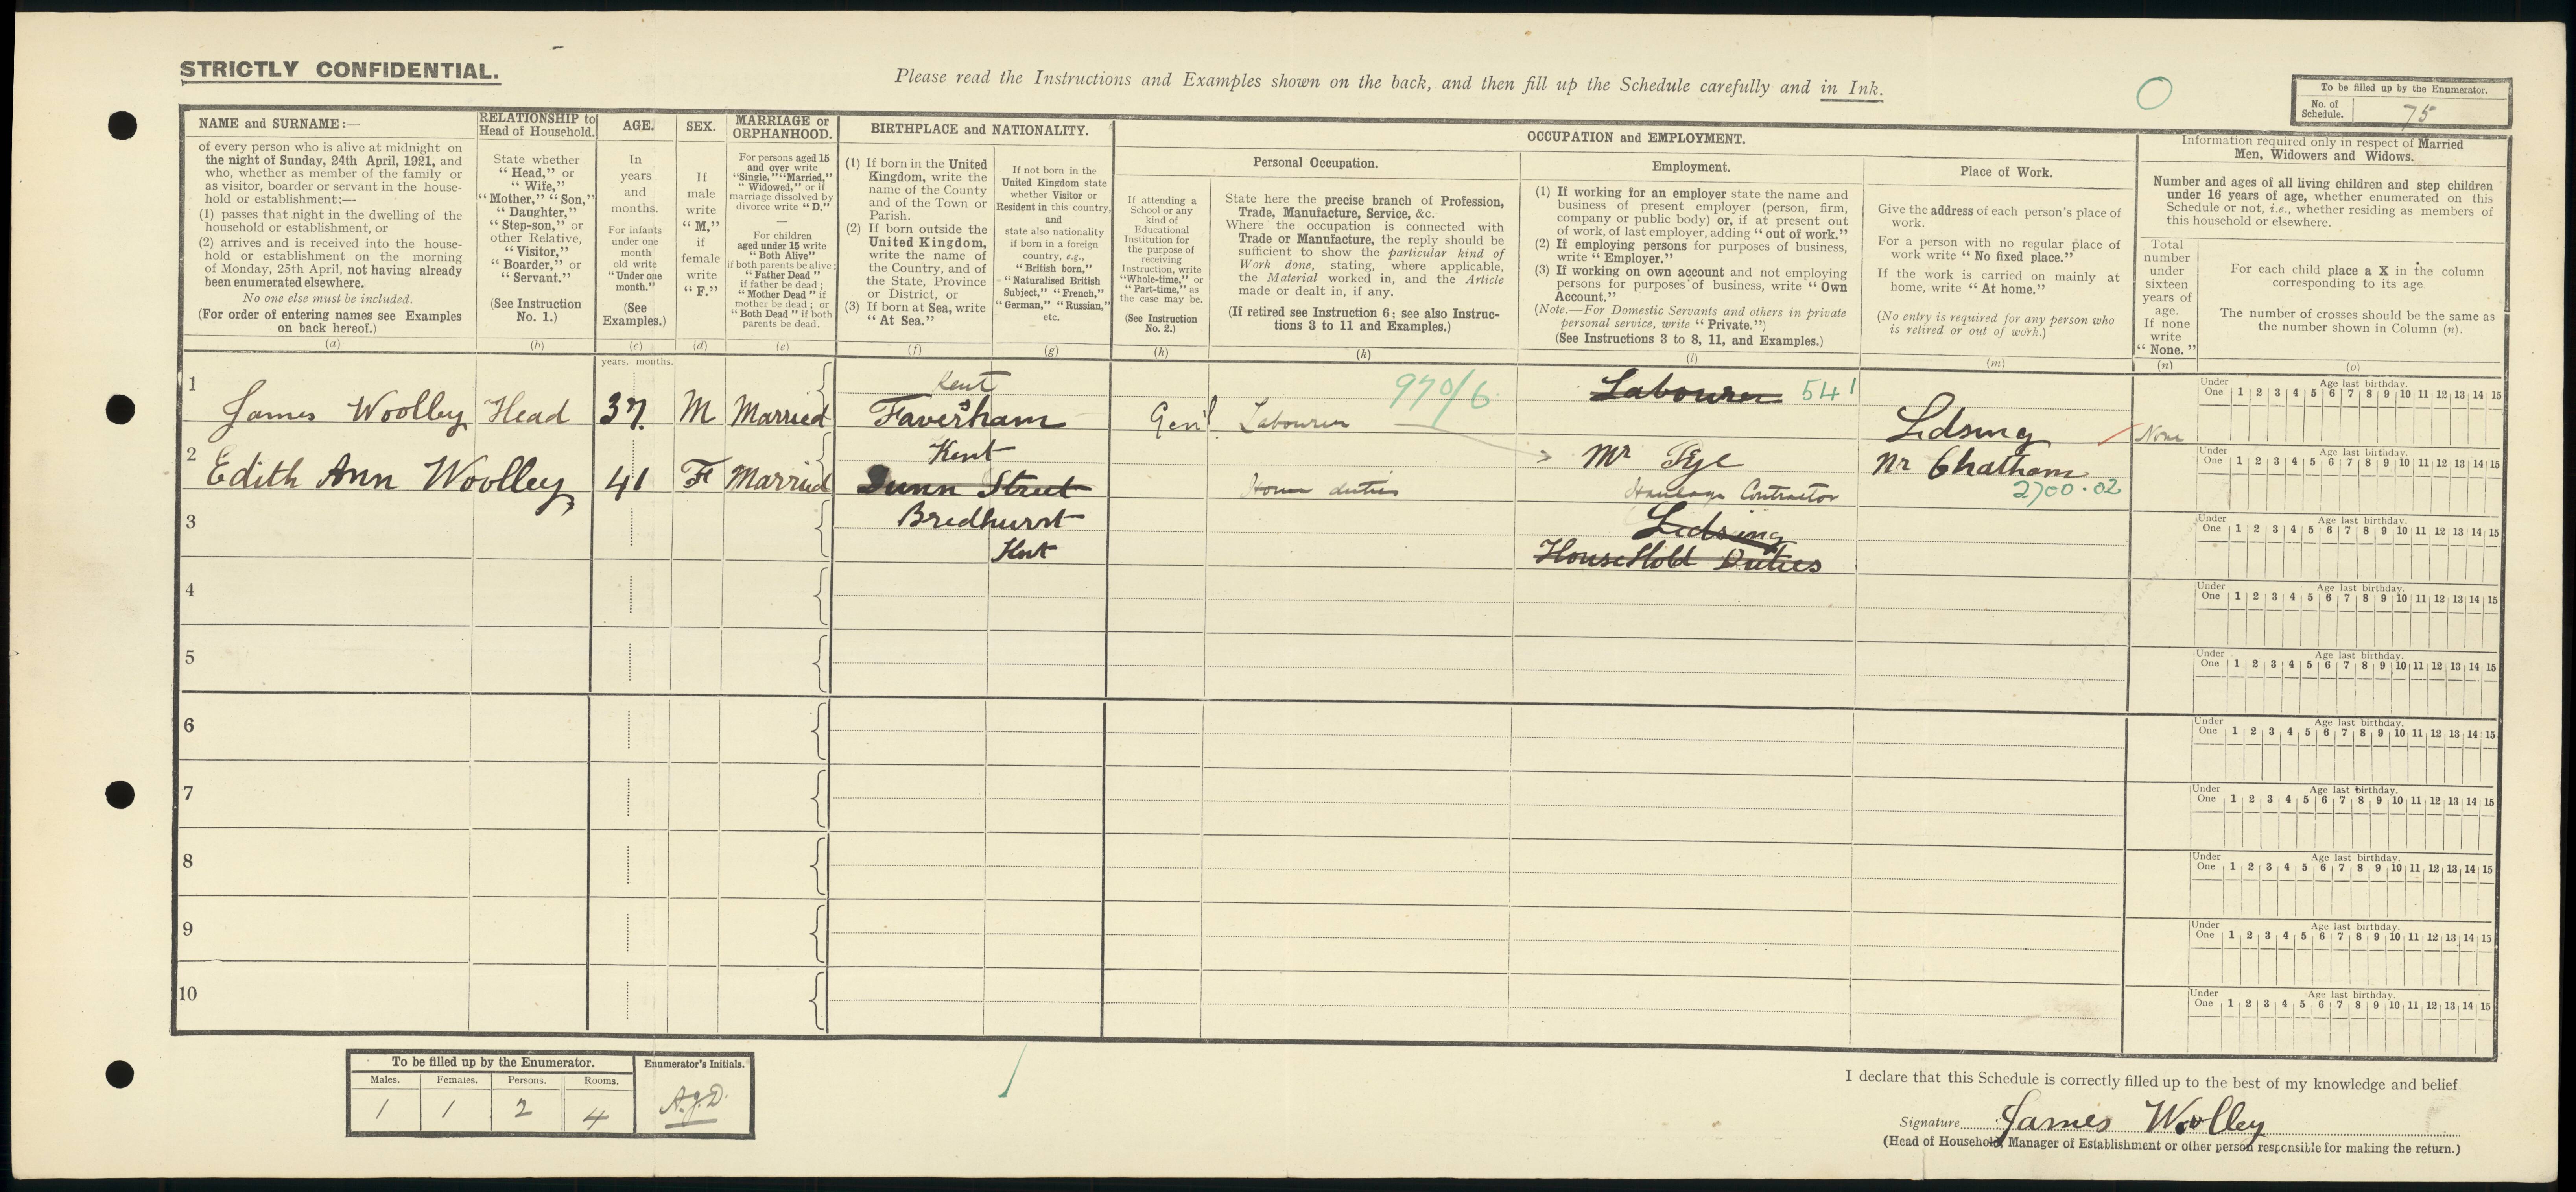 STRICTLY CONFIDENTIAL.
Please read the Instructions and Examples shown on the back, and then fill up the Schedule carefully and in Ink.
To be filled up by the Enumerator.
No. of Schedule. 75
NAME and SURNAME :—
of every person who is alive at midnight on
the night of Sunday, 24th April, 1921, and
who, whether as member of the family or
as visitor, boarder or servant in the house-
hold or establishment:—
(1) passes that night in the dwelling of the
household or establishment, or
(2) arrives and is received into the house-
hold or establishment on the morning
of Monday, 25th April, not having already
been enumerated elsewhere.
No one else must be included.
(For order of entering names see Examples
on back hereof.)
(a)
RELATIONSHIP to
Head of Household.
State whether
“Head,” or
“Wife,”
“Mother,” “Son,”
“Daughter,”
“Step-son,” or
other Relative,
“Visitor,”
“Boarder,” or
“Servant.”
(See Instruction
No. 1.)
(b)
AGE.
In
years
and
months.
For infants
under one
month
old write
“Under one
month.”
(See
Examples.)
(c)
SEX.
If
male
write
“M,”
if
female
write
“F.”
(d)
MARRIAGE or
ORPHANHOOD.
For persons aged 15
and over write
“Single,” “Married,”
“Widowed,” or if
marriage dissolved by
divorce write “D.”
—
For children
aged under 15 write
“Both Alive”
if both parents be alive;
“Father Dead”
if father be dead;
“Mother Dead” if
mother be dead; or
“Both Dead” if both
parents be dead.
(e)
BIRTHPLACE and NATIONALITY.
(1) If born in the United
Kingdom, write the
name of the County
and of the Town or
Parish.
(2) If born outside the
United Kingdom,
write the name of
the Country, and of
the State, Province
or District, or
(3) If born at Sea, write
“At Sea.”
(f)
If not born in the
United Kingdom state
whether Visitor or
Resident in this country,
and
state also nationality
if born in a foreign
country, e.g.,
“British born,”
“Naturalised British
Subject,” “French,”
“German,” “Russian,”
etc.
(g)
OCCUPATION and EMPLOYMENT.
Personal Occupation.
If attending a
School or any
kind of
Educational
Institution for
the purpose of
receiving
Instruction, write
“Whole-time,” or
“Part-time,” as
the case may be.
(See Instruction
No. 2.)
(h)
State here the precise branch of Profession,
Trade, Manufacture, Service, &c.
Where the occupation is connected with
Trade or Manufacture, the reply should be
sufficient to show the particular kind of
Work done, stating, where applicable,
the Material worked in, and the Article
made or dealt in, if any.
(If retired see Instruction 6: see also Instruc-
tions 3 to 11 and Examples.)
(k)
Employment.
(1) If working for an employer state the name and
business of present employer (person, firm,
company or public body) or, if at present out
of work, of last employer, adding “out of work.”
(2) If employing persons for purposes of business,
write “Employer.”
(3) If working on own account and not employing
persons for purposes of business, write “Own
Account.”
(Note.—For Domestic Servants and others in private
personal service, write “Private.”)
(See Instructions 3 to 8, 11, and Examples.)
(l)
Place of Work.
Give the address of each person's place of
work.
For a person with no regular place of
work write “No fixed place.”
If the work is carried on mainly at
home, write “At home.”
(No entry is required for any person who
is retired or out of work.)
(m)
Information required only in respect of Married
Men, Widowers and Widows.
Number and ages of all living children and step children
under 16 years of age, whether enumerated on this
Schedule or not, i.e., whether residing as members of
this household or elsewhere.
Total
number
under
sixteen
years of
age.
If none
write
“None.”
(n)
For each child place a X in the column
corresponding to its age
The number of crosses should be the same as
the number shown in Column (n).
(o)
years. months.
1 James Woolley Head 37. M Married
Kent
Faversham
Gen'l. Labourer 970/6
Labourer 541
Lidsing
None
Under One Age last birthday. 1 2 3 4 5 6 7 8 9 10 11 12 13 14 15
2 Edith Ann Woolley 41 F Married
Kent
Dunn Street
Home duties
Mr Pye
Haulage Contractor
Nr Chatham
2700.02
Under One Age last birthday. 1 2 3 4 5 6 7 8 9 10 11 12 13 14 15
3
Bredhurst
Kent
Lidsing
HouseHold Duties
Under One Age last birthday. 1 2 3 4 5 6 7 8 9 10 11 12 13 14 15
4
Under One Age last birthday. 1 2 3 4 5 6 7 8 9 10 11 12 13 14 15
5
Under One Age last birthday. 1 2 3 4 5 6 7 8 9 10 11 12 13 14 15
6
Under One Age last birthday. 1 2 3 4 5 6 7 8 9 10 11 12 13 14 15
7
Under One Age last birthday. 1 2 3 4 5 6 7 8 9 10 11 12 13 14 15
8
Under One Age last birthday. 1 2 3 4 5 6 7 8 9 10 11 12 13 14 15
9
Under One Age last birthday. 1 2 3 4 5 6 7 8 9 10 11 12 13 14 15
10
Under One Age last birthday. 1 2 3 4 5 6 7 8 9 10 11 12 13 14 15
To be filled up by the Enumerator.
Males. Females. Persons. Rooms.
1 1 2 4
Enumerator's Initials.
A.J.D.
I declare that this Schedule is correctly filled up to the best of my knowledge and belief.
Signature James Woolley
(Head of Household, Manager of Establishment or other person responsible for making the return.)